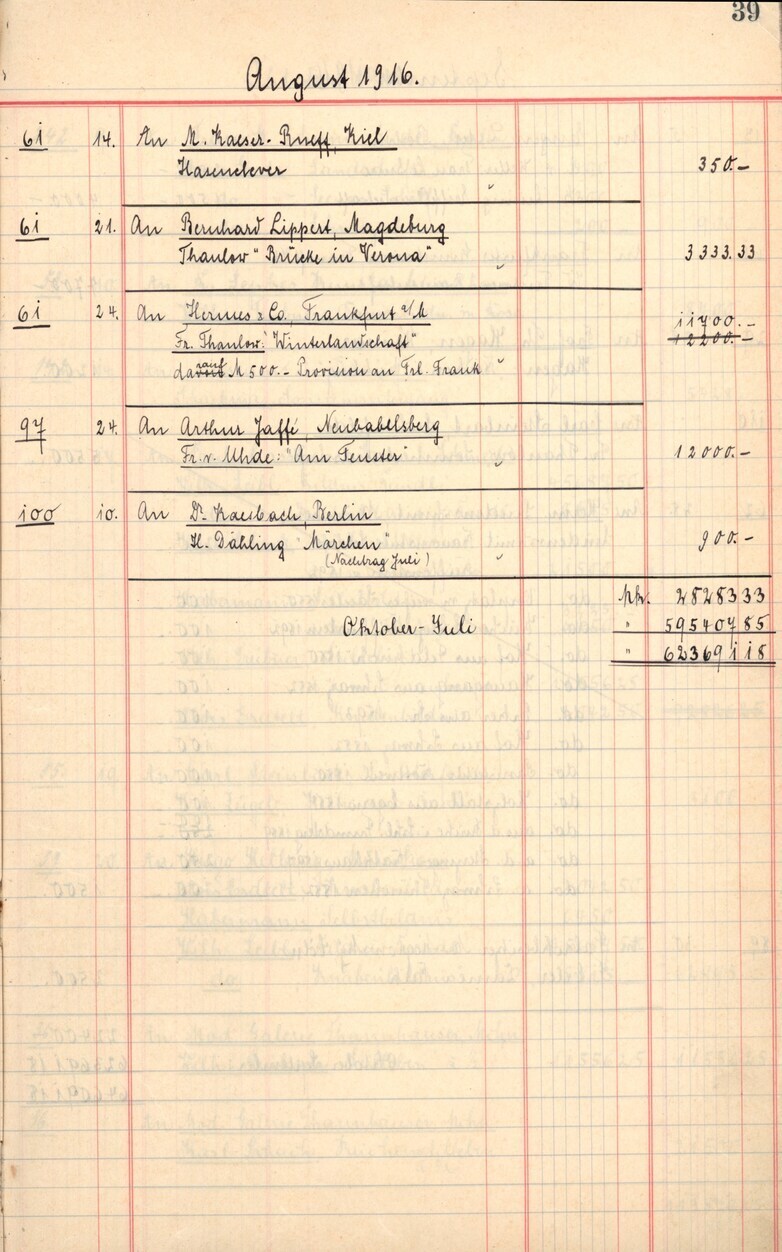 39
August 1916.
61 14. An M. Kaeser-Rueff, Kiel
Hasenclever " 350.-
61 21. An Bernhard Lippert, Magdeburg
Thaulow "Brücke in Verona" " 3333.33
61 24. An Hermes & Co, Frankfurt a/M
11700.-
Fr. Thaulow: "Winterlandschaft" 12200.-
darauf M 500.- Provision an Frl. Frank "
97 24. An Arthur Jaffé, Neubabelsberg
Fr. v. Uhde: "Am Fenster" " 12000.-
100 10. An Dr. Kaesbach, Berlin
H. Dähling "Märchen" 900.-
(Nachtrag Juli) "
Mk. 28283 33
Oktober-Juli " 595407 85
" 623691 18